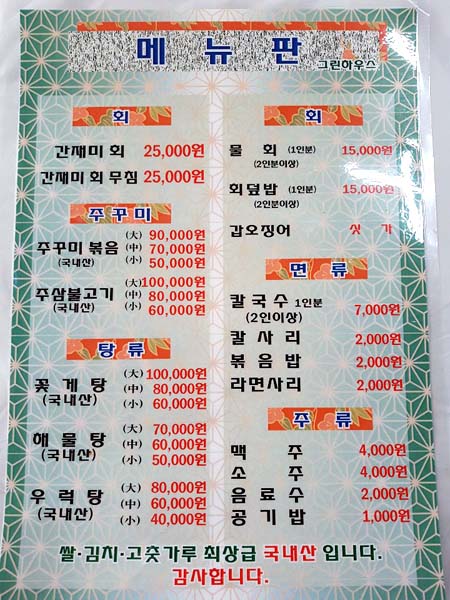 메뉴판
그린하우스
회
간재미 회 25,000원
간재미 회 무침 25,000원
주꾸미
주꾸미 볶음 (大) 90,000원
(국내산) (中) 70,000원
(小) 50,000원
주삼불고기 (大) 100,000원
(국내산) (中) 80,000원
(小) 60,000원
탕류
꽃게탕 (大) 100,000원
(국내산) (中) 80,000원
(小) 60,000원
해물탕 (大) 70,000원
(국내산) (中) 60,000원
(小) 50,000원
우럭탕 (大) 80,000원
(국내산) (中) 60,000원
(小) 40,000원
회
물 회 (1인분) 15,000원
(2인분이상)
회덮밥 (1인분) 15,000원
(2인분이상)
갑오징어 싯가
면류
칼국수 1인분 7,000원
(2인이상)
칼사리 2,000원
볶음밥 2,000원
라면사리 2,000원
주류
맥주 4,000원
소주 4,000원
음료수 2,000원
공기밥 1,000원
쌀·김치·고춧가루 최상급 국내산 입니다.
감사합니다.